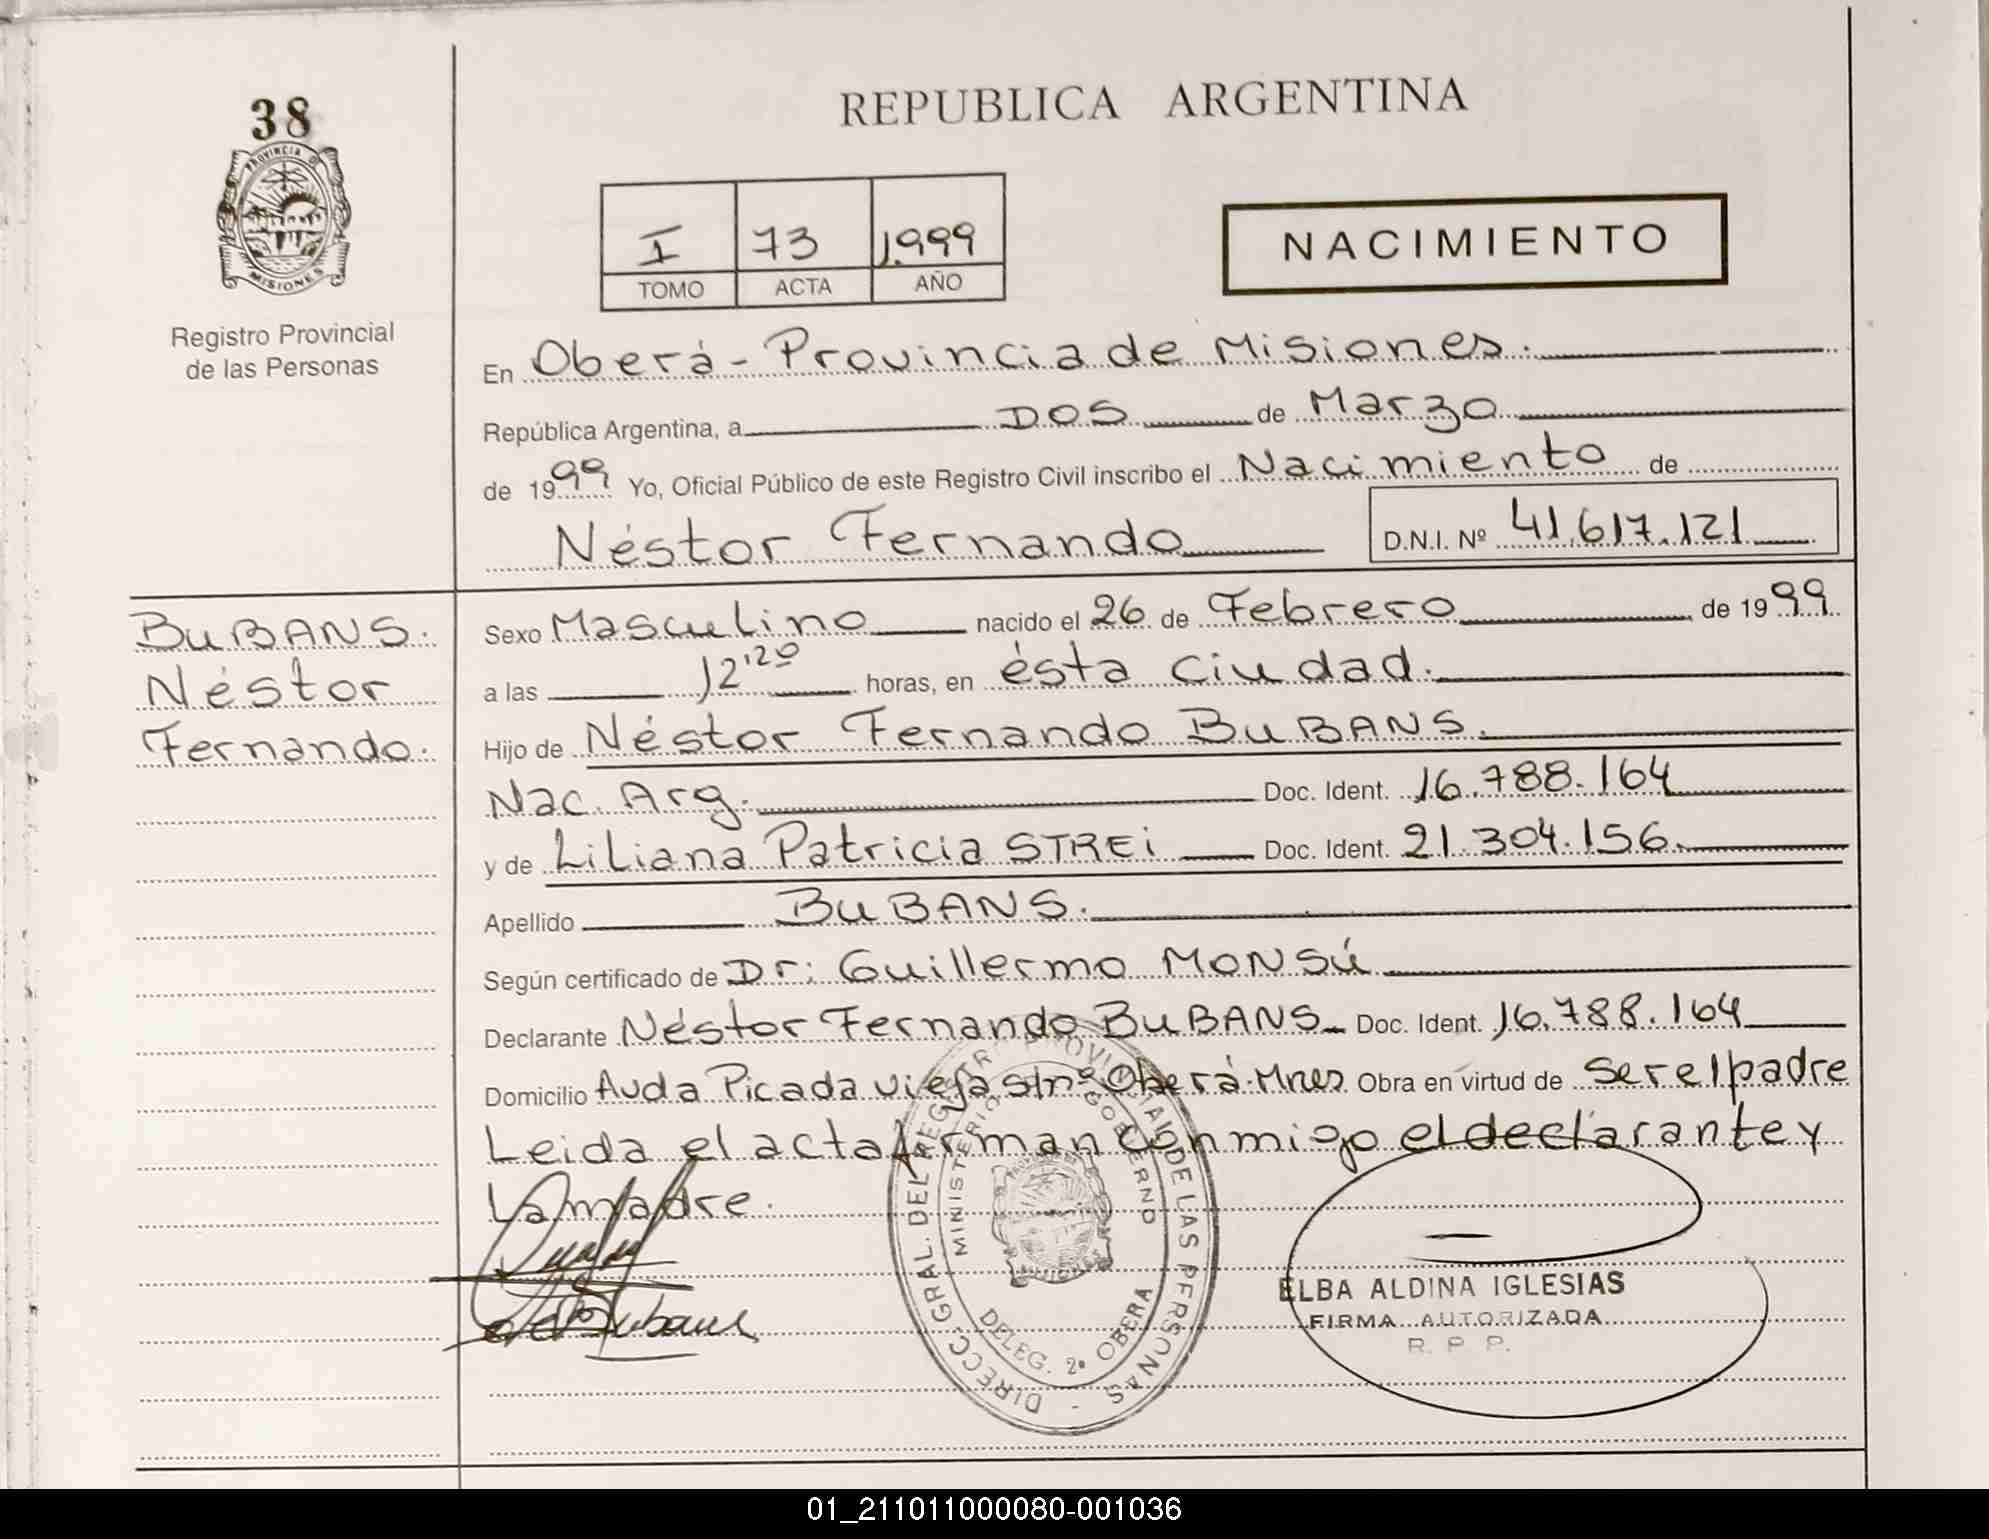 38
PROVINCIA D
MISIONES
Registro Provincial
de las Personas
REPUBLICA ARGENTINA
I 73 1.999
TOMO ACTA AÑO
NACIMIENTO
En Oberá - Provincia de Misiones.
República Argentina, a DOS de Marzo
de 1999 Yo, Oficial Público de este Registro Civil inscribo el Nacimiento de
Néstor Fernando D.N.I. Nº 41.617.121
BUBANS.
Néstor
Fernando.
Sexo Masculino nacido el 26 de Febrero de 1999
a las 12'20 horas, en ésta ciudad.
Hijo de Néstor Fernando BUBANS.
Nac. Arg. Doc. Ident. 16.788.164
y de Liliana Patricia STREi Doc. Ident. 21.304.156.
Apellido BUBANS.
Según certificado de Dr: Guillermo MONSÚ
Declarante Néstor Fernando BUBANS Doc. Ident. 16.788.164
Domicilio Avda Picada Vieja s/nº Oberá. Mnes Obra en virtud de ser el padre
Leida el acta firman conmigo el declarante y
La madre.
DIRECC. GRAL. DEL REGISTRO PROVINCIAL DE LAS PERSONAS -
MINISTERIO GOBIERNO
DELEG. 2ª OBERA
ELBA ALDINA IGLESIAS
FIRMA AUTORIZADA
R. P. P.
01_211011000080-001036